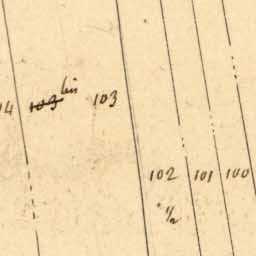 14 103 bis 103
102 101 100
1/2